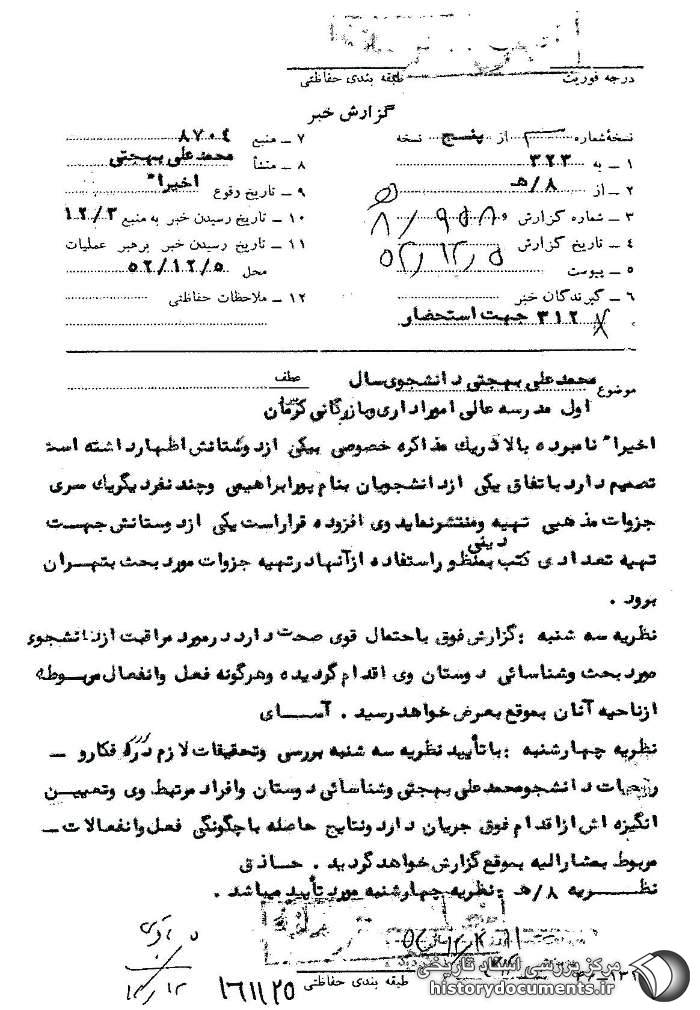 درجه فوریت طبقه بندی حفاظتی
گزارش خبر
نسخهٔ شماره از پنج نسخه
۱ ـ به ۳۲۳
۲ ـ از ۸/ هـ
۳ ـ شماره گزارش
۴ ـ تاریخ گزارش ۵۲/۱۲/۵
۵ ـ پیوست
۶ ـ گیرندگان خبر
۳۱۲ جهت استحضار
۷ ـ منبع ۸۷۰۴
۸ ـ منشأ محمدعلی بهجتی
۹ ـ تاریخ وقوع اخیراً
۱۰ ـ تاریخ رسیدن خبر به منبع ۱۲/۳
۱۱ ـ تاریخ رسیدن خبر برهبر عملیات
محل ۵۲/۱۲/۵
۱۲ ـ ملاحظات حفاظتی
موضوع محمدعلی بهجتی دانشجوی سال عطف
اول مدرسه عالی امور اداری و بازرگانی کرمان
اخیراً نامبرده بالا در یک مذاکره خصوصی بیکی از دوستانش اظهار داشته است
تصمیم دارد باتفاق یکی از دانشجویان بنام پورابراهیمی وچند نفر دیگر یک سری
جزوات مذهبی تهیه ومنتشر نماید وی افزوده قرار است یکی از دوستانش جهت
تهیه تعدادی کتب دینی بمنظور استفاده از آنها در تهیه جزوات مورد بحث بتهران
برود .
نظریه سه شنبه : گزارش فوق با احتمال قوی صحت دارد در مورد مراقبت از دانشجوی
مورد بحث وشناسائی دوستان وی اقدام گردیده وهرگونه فعل وانفعال مربوطه
از ناحیه آنان بموقع بعرض خواهد رسید . آسای
نظریه چهارشنبه : با تأیید نظریه سه شنبه بررسی وتحقیقات لازم افکار و ـ
روحیات دانشجو محمدعلی بهجتی وشناسائی دوستان وافراد مرتبط وی وتعیین
انگیزه اش از اقدام فوق جریان دارد ونتایج حاصله با چگونگی فعل وانفعالات ـ
مربوط بمشارالیه بموقع گزارش خواهد گردید . حاذق
نظریه ۸/ هـ : نظریه چهارشنبه مورد تأیید میباشد .
طبقه بندی حفاظتی
۱۶۱۱۲۵
مرکز بررسی اسناد تاریخی
historydocuments.ir